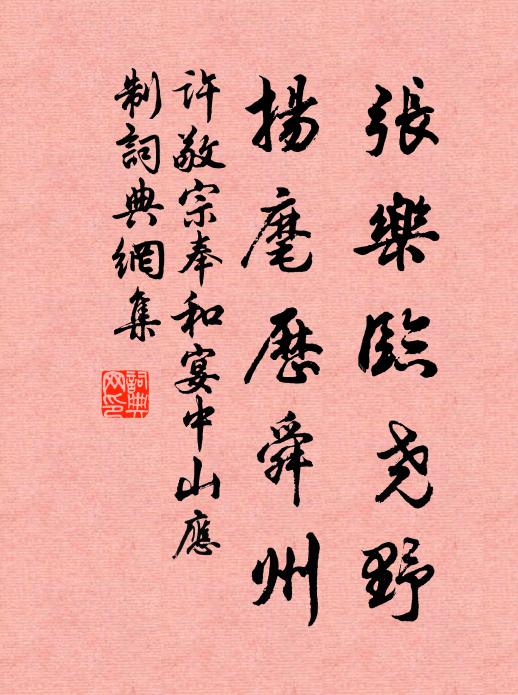 張樂臨尧野
揚麾歷舜州
許敬宗奉和宴中山應
制詞典網集
詞典
网印